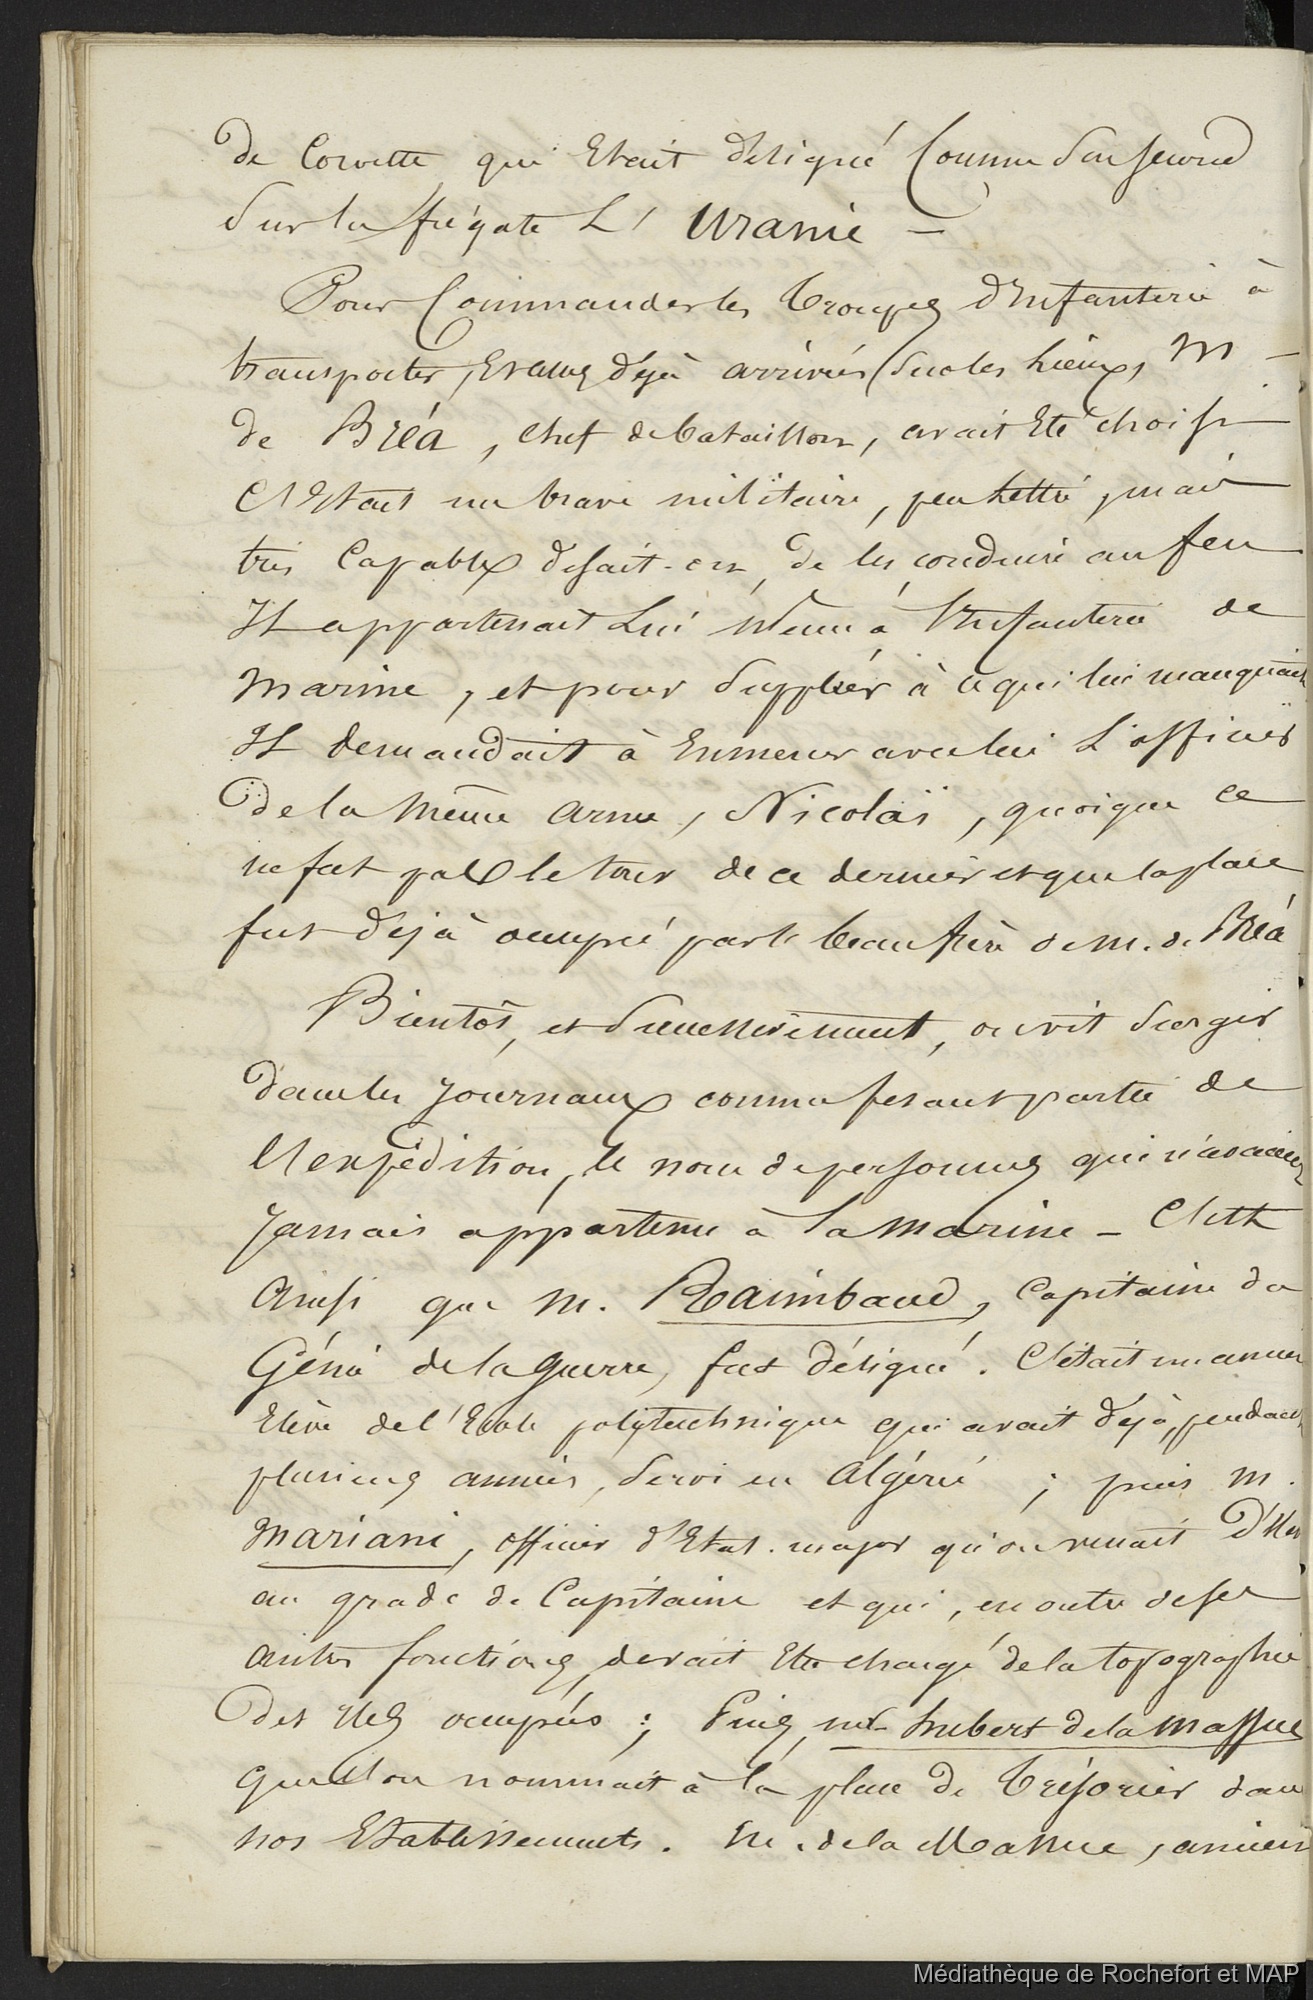 de Corvette, qui Etait désigné Comme Son Second
Sur la frégate L' Uranie —
Pour Commander les Troupes d'Infanterie à
transporter, Et déjà arrivées Sur les Lieux, M —
de Bréa, chef de bataillon, avait Eté choisi —
C'Etait un brave militaire, peu Lettré, mais
très Capable, disait-on, de les conduire au feu
Il appartenait Lui Même à l'Infanterie de
Marine, et pour Suppléer à ce qui lui manquait
Il demandait à Emmener avec lui L'officier
de la Même Arme, Nicolaï, quoique ce
ne fut pas le tour de ce dernier et que la place
fut déjà occupée par le beau frère de M. de Bréa
Bientôt, et Successivement, on vit Surgir
dans les Journaux comme fesant partie de
L'expédition, le nom de personnes qui n'avaient
Jamais appartenu à la Marine — C'est
Ainsi que M. Raimbaud, Capitaine du
Génie de la Guerre, fut désigné. C'était un ancien
Elève de l'Ecole polytechnique qui avait déjà, pendant
plusieurs années, Servi en Algérie ; puis M.
Mariani, officier d'Etat-major qu'on venait D'élever
au grade de Capitaine et qui, en outre de ses
autres fonctions, devait Etre chargé de la topographie
Des Iles occupées ; Puis, Mr hubert de la Massue
Que l'on nommait à la place de Trésorier dans
nos Etablissements. M. de la Massue, ancien
Médiathèque de Rochefort et MAP